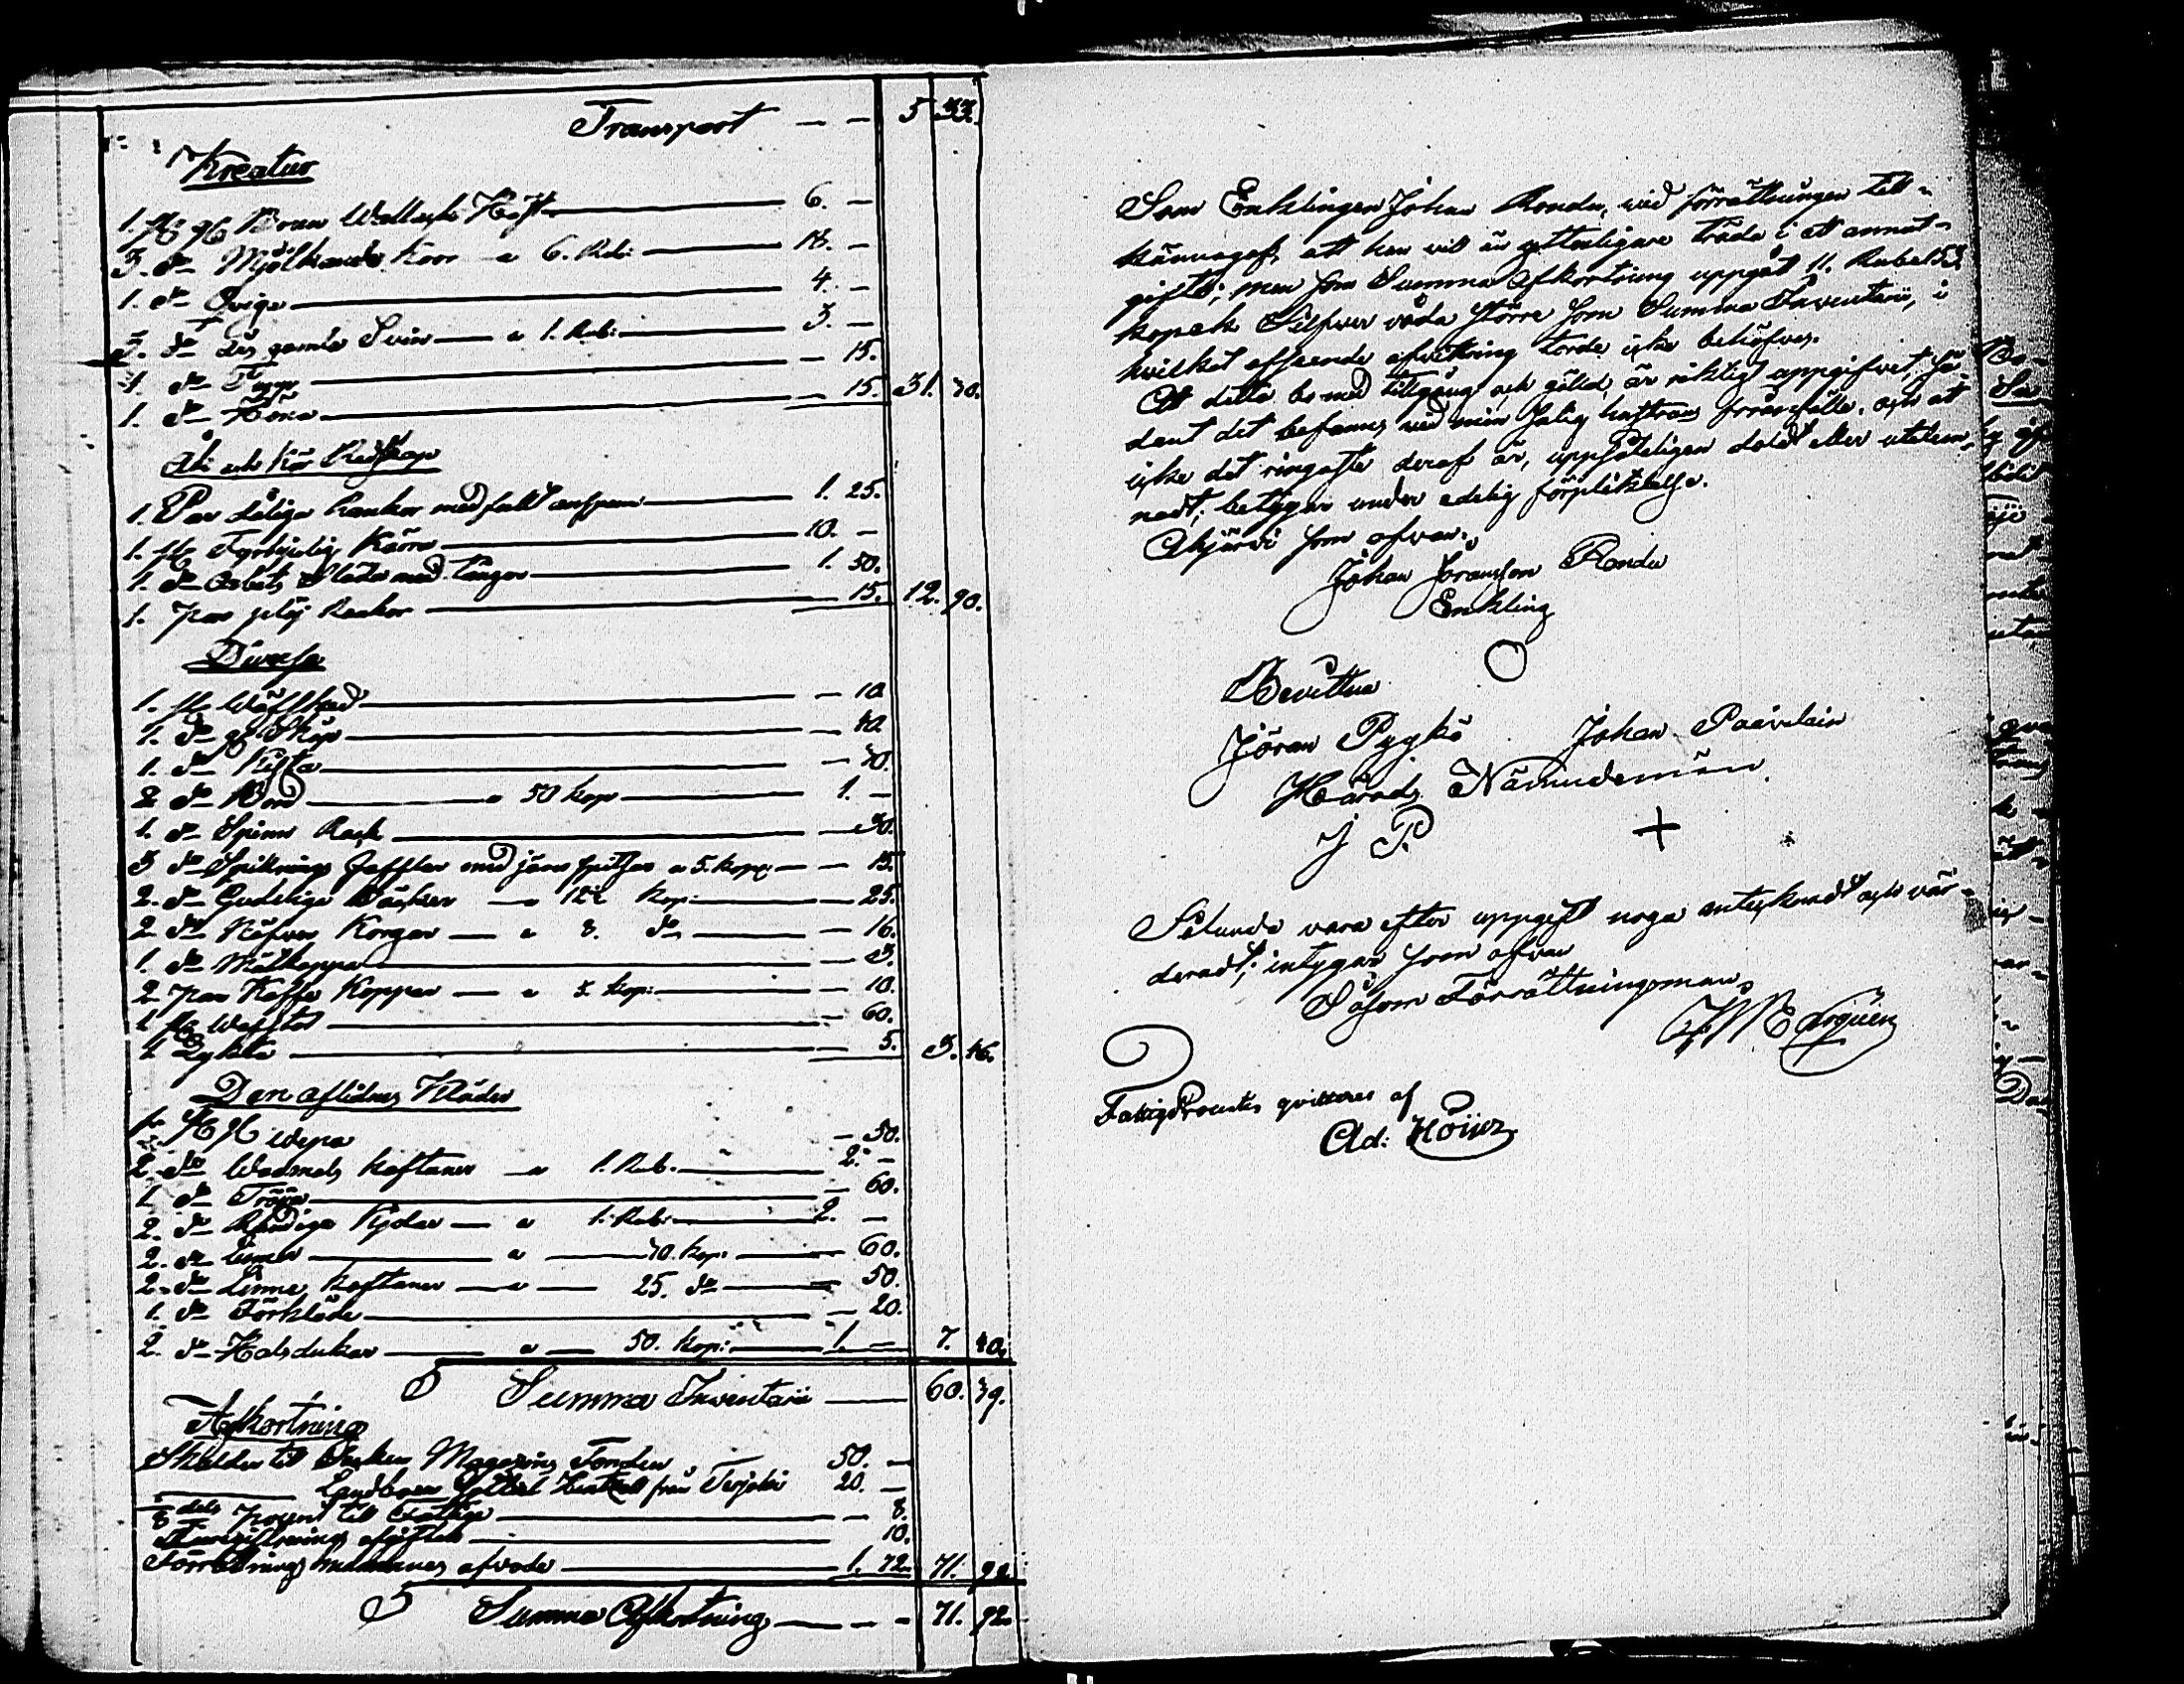 Transport — — 5 33.
Kreatur
1. st. gl. Brun Wallack Häst — 6. —
3. do Mjölkande Koor a 6. Rub: — 18. —
1. do Qviga — 4. —
3. do års gamla Svin — a 1. Rub: — 3. —
1. do Tupp — — 15.
1. do Höna — — 15. 31. 30.
Åk och Kör Redskap
1. Par dåliga Rankor med fullt anspann — 1. 25.
1. st. Fyrhjulig Kärra — 10. —
1. do Arbets Släde med tånger — 1. 50.
1. par plöj Rankor — 15. 12. 90.
Diverse
1. st. Wäfsked — — 10
1. do gl. Skåp — — 40.
1. do Kista — — 30.
2 do Bord — a 50 kop — 1. —
1. do Spinn Rock — — 30.
3 do Spiknings Gafflar med järn spitsar a 5. kop: — — 15.
2. do Gudeliga Böcker — a 12½ kop: — — 25.
2. do Näfver Korgar — a 8. do — — 16.
1. do Mälkoppa — — 5.
2. par Kaffe Koppar — a 5. kop: — — 10.
1 st. Wäfstol — — 60.
1 Lykta — — 5. 3. 46.
Den aflidnes Kläder
1. st. gl. wepa — 50.
2. do Wadmals Kaftaner — a 1. Rub. — 2. —
1. do Tröja — — 60.
2. do Randiga Kjolar — a 1. Rub: — 2. —
2. do linne — a — 30. kop: — 60.
2. do Linne Kaftaner — a — 25. do — 50.
1. do Förkläde — — 20.
2. do Halsdukar — a — 50. kop: — 1. — 7. 40.
S Summa Inventarii — 60. 39.
Afkortning
Skulden till Sockne Magasins Fonden 50. —
— Landboen från Terjärvi 20. —
1/8 dels procent till Fattige — — 8.
afgiften — 10.
Förrättnings mannens arvode — 1. 72. 71. 92.
S Summa Afkortning — — — 71. 92.
Som Enklingen Johan Ronda, vid förrättningen till-
kännagaf, att han vill än ytterligare träda i ett annat
gifte; men som Summa Afkortning uppgår 11. Rubel 53
kopek Silfver värda större som Summa Inventarii, i
hvilket afseende afvittring torde icke behöfvas.
Att detta bo med tillgång och gäld, är riktigt uppgifvet, så-
dant det befanns vid min Salig hustrus frånfälle, och att
icke det ringaste deraf är, uppsåteligen doldt eller utelem-
nadt; betygar under edelig förpliktelse.
Åkjärvi som ofvan.
Johan Joransson Ronda
Enkling
O
Bevittna
Jöran Pyykö Johan Paavilain
Härads Nämndemän.
J P. +
Sålunda vara efter uppgift noga antecknadt och vär-
deradt; intygar som ofvan
Såsom Förrättningsman,
FattigProcenten qvitteras af
Ad: